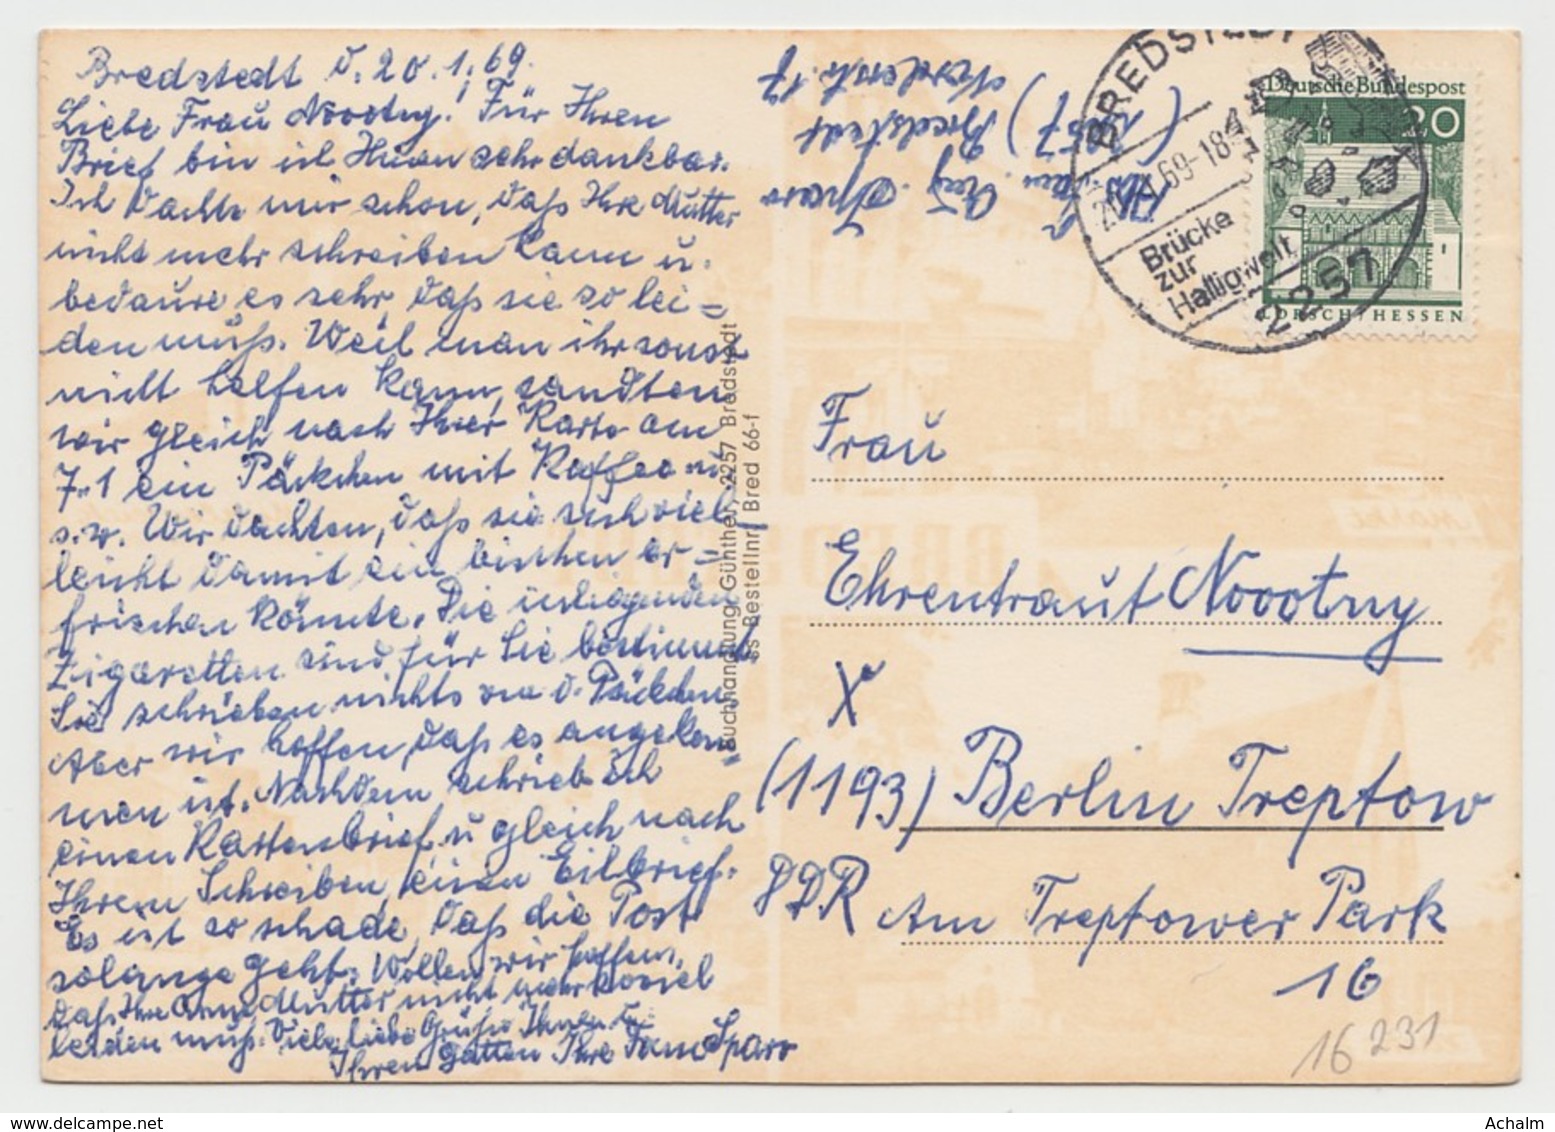 Bredstedt d. 20.1.69.
Liebe Frau Novotny! Für Ihren
Brief bin ich Ihnen sehr dankbar.
Ich dachte mir schon, daß Ihre Mutter
nicht mehr schreiben kann u.
bedaure es sehr, daß sie so lei=
den muß. Weil man ihr sonst
nicht helfen kann, sandten
wir gleich nach Ihrer Karte am
7.1 ein Päckchen mit Kaffee u
s.w. Wir dachten, daß sie sich viel=
leicht damit ein bischen er=
frischen könnte. Die inliegenden
Zigaretten sind für Sie bestimmt.
Sie schrieben nichts von d. Päckchen,
Aber wir hoffen, daß es angekom=
men ist. Nachdem schrieb ich
einen Kartenbrief u gleich nach
Ihrem Schreiben, einen Eilbrief.
Es ist so schade, daß die Post
solange geht. Wollen wir hoffen,
daß Ihre arme Mutter nicht mehr soviel
leiden muß. Viele liebe Grüße Ihnen u.
Ihrem Gatten Ihre Fam Sparr
Buchhandlung Günther, 2257 Bredstedt
ss Bestellnr. Bred 66-f
Abs.
Sparr
(2257) Bredstedt
17
BREDSTEDT
69-18
Brücke
zur
Halligwelt
2257
Deutsche Bundespost
20
LORSCH/HESSEN
Frau
Ehrentraut Novotny
X
(1193) Berlin Treptow
DDR Am Treptower Park
16
16 231
Achalm